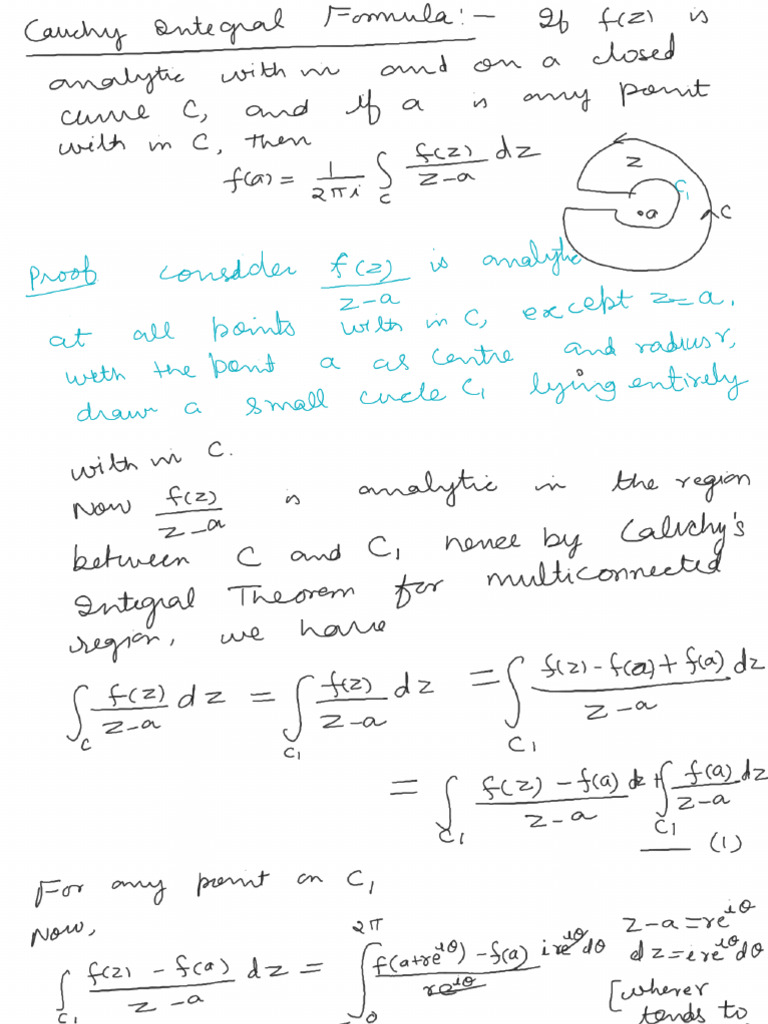 Cauchy Integral Formula:- If f(z) is
analytic with in and on a closed
curve C, and if a is any point
with in C, then
f(a) = 1/2πi ∫_C f(z)/z-a dz
z
C₁
•a
C
Proof Consdder f(z)/z-a is analytic
at all points with in C, except z=a.
with the point a as centre and radius r,
draw a small circle C₁ lying entirely
with in C.
Now f(z)/z-a is analytic in the region
between C and C₁ hence by Cauchy's
Integral Theorem for multiconnected
region, we have
∫_C f(z)/z-a dz = ∫_C₁ f(z)/z-a dz = ∫_C₁ f(z)-f(a)+f(a)/z-a dz
= ∫_C₁ f(z)-f(a)/z-a dz + ∫_C₁ f(a)dz/z-a
— (1)
For any point on C₁
z-a=re^iθ
Now,
dz=ire^iθ dθ
∫_C₁ f(z)-f(a)/z-a dz = ∫_0^2π f(a+re^iθ)-f(a)/re^iθ ire^iθ dθ
[where r
tends to